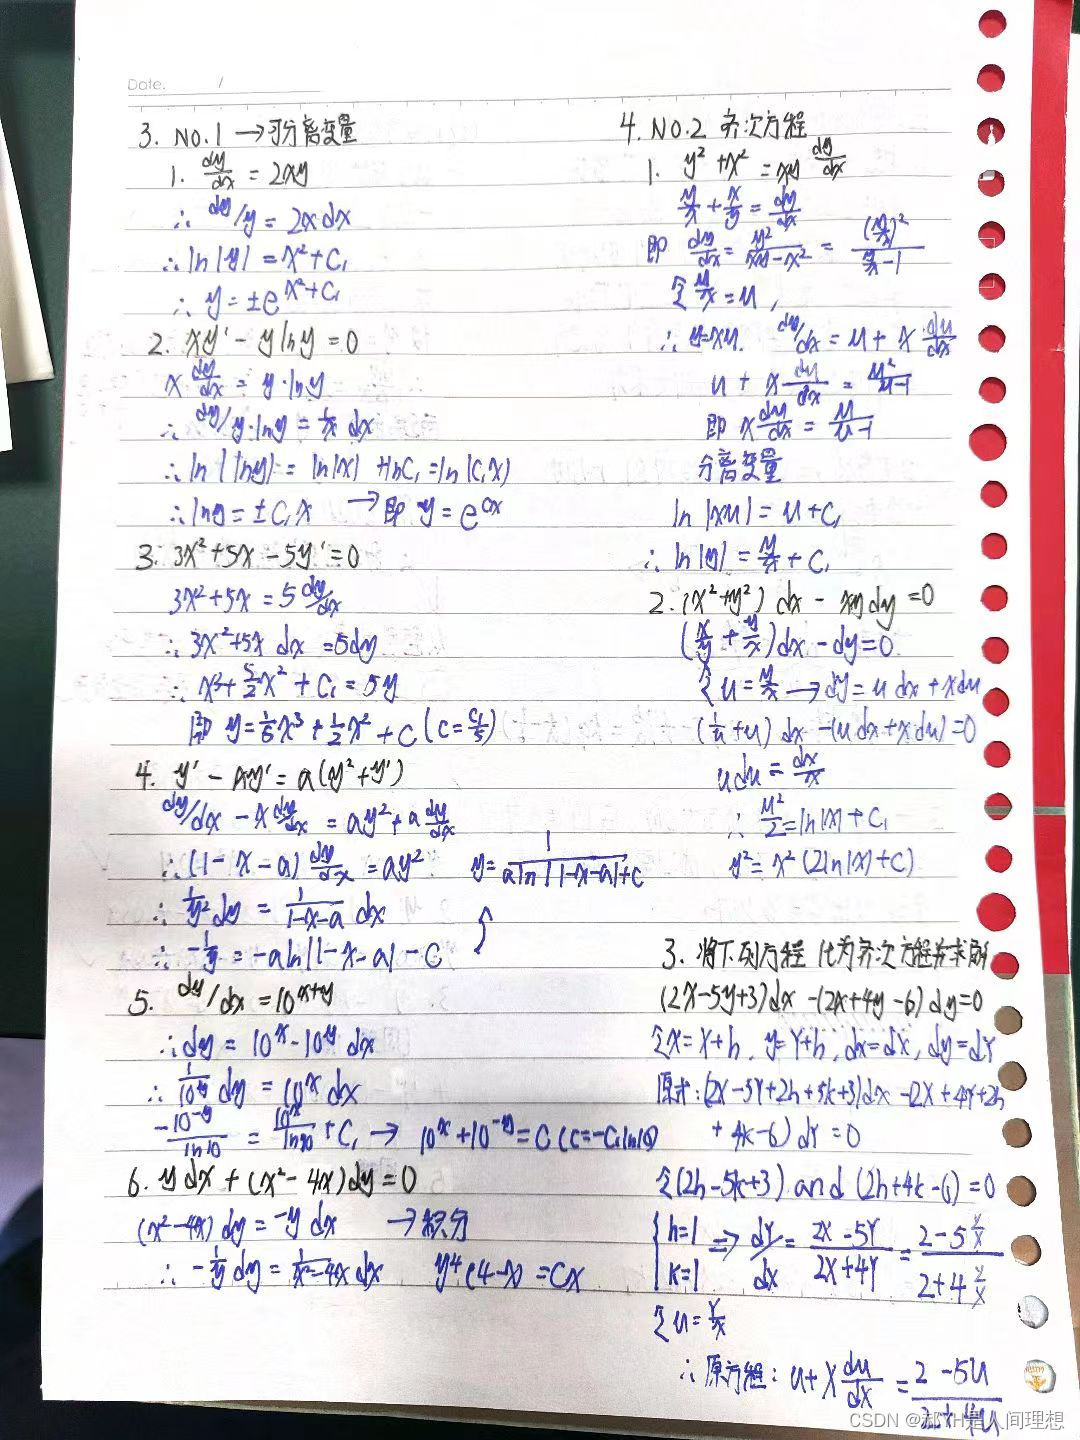 Date. /
3. No.1 → 可分离变量
1. dy/dx = 2xy
∴ dy/y = 2x dx
∴ ln|y| = x² + C₁
∴ y = ±e^(x²+C₁)
2. xy' - y ln y = 0
x dy/dx = y·ln y
∴ dy/y·ln y = 1/x dx
∴ ln|ln y| = ln|x| + lnC₁ = ln|C₁x|
∴ ln y = ±C₁x → 即 y = e^(Cx)
3. 3x² + 5x - 5y' = 0
3x² + 5x = 5 dy/dx
∴ 3x² + 5x dx = 5dy
∴ x³ + 5/2 x² + C₁ = 5y
即 y = 1/5 x³ + 1/2 x² + C (C = C₁/5)
4. y' - xy' = a(y² + y')
dy/dx - x dy/dx = ay² + a dy/dx
∴ (1 - x - a) dy/dx = ay² y = 1/(a ln|1-x-a| + C)
∴ 1/y² dy = 1/(1-x-a) dx
∴ -1/y = -a ln|1-x-a| - C
5. dy/dx = 10^(x+y)
∴ dy = 10^x - 10^y dx
∴ 1/10^y dy = 10^x dx
-10^(-y)/ln10 = 10^x/ln10 + C₁ → 10^x + 10^(-y) = C (C = -C₁ln10)
6. y dx + (x² - 4x) dy = 0
(x² - 4x) dy = -y dx → 积分
∴ -1/y dy = 1/(x²-4x) dx y⁴(4-x) = Cx
4. NO.2 齐次方程
1. y² + x² = xy dy/dx
y/x + x/y = dy/dx
即 dy/dx = y²/(xy-x²) = (y/x)²/(y/x - 1)
令 y/x = u,
∴ y=xu. dy/dx = u + x du/dx
u + x du/dx = u²/(u-1)
即 x du/dx = u/(u-1)
分离变量
ln|xu| = u + C₁
∴ ln|y| = y/x + C₁
2. (x² + y²) dx - xy dy = 0
(x/y + y/x) dx - dy = 0
令 u = y/x → dy = u dx + x du
(1/u + u) dx - (u dx + x du) = 0
u du = dx/x
∴ u²/2 = ln|x| + C₁
y² = x²(2ln|x| + C)
3. 将下列方程化为齐次方程并求解
(2x-5y+3)dx - (2x+4y-6)dy = 0
令 x = X+h, y = Y+h, dx = dX, dy = dY
原式: (2X-5Y+2h+5k+3)dx - (2X+4Y+2h
+ 4k-6) dY = 0
令 (2h-5k+3) and (2h+4k-6) = 0
{ h=1 k=1 => dY/dX = (2X-5Y)/(2X+4Y) = (2-5 Y/X)/(2+4 Y/X)
令 u = Y/X
∴ 原方程: u + X du/dX = (2-5u)/(2+4u)
CSDN @郝YH是人间理想